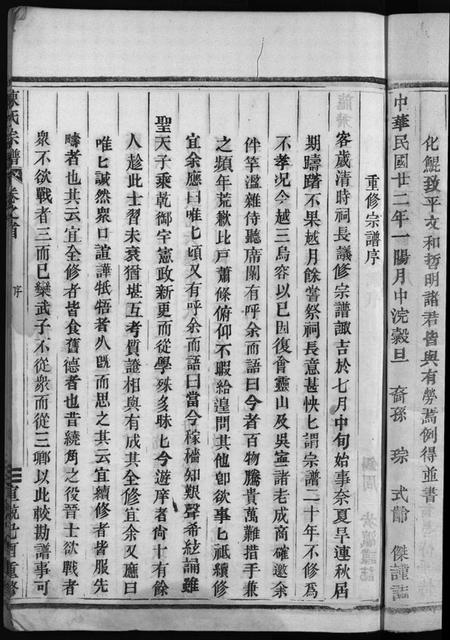 化鯤致平文和哲明諸君皆與有勞焉例得並書
中華民國廿二年一陽月中浣穀旦 裔孫 琮 式 傑謹誌
重修宗譜序
客歲清時祠長議修宗譜諏吉於七月中旬始事奈夏旱連秋居
期躊躇不果越月餘嘗祭祠長意甚怏匕謂宗譜二十年不修爲
不孝况今越三鳥容以已因復會靈山及吳寧諸老成商確邀余
伴竽濫雜侍聽席閣有呼余而語曰今者百物騰貴萬難措手兼
之頻年荒歉比戸蕭條俯仰不暇給遑問其他卽欲事匕祗續修
宜余應曰唯匕頃又有呼余而語曰當今稼穡知艱聲希絃誦雖
聖天子乘乾御宇憲政新更而從學殊多昧匕今遊庠者尙十有餘
人趁此士習未衰猶堪互考質證相與有成其全修宜余又應曰
唯匕誠然衆口諠譁牴牾者久旣而思之其云宜續修者皆服先
疇者也其云宜全修者皆食舊德者也昔繞角之役晉士欲戰者
衆不欲戰者三而已欒武子不從衆而從三卿以此較勘譜事可
陳氏宗譜 卷之首 序 重修